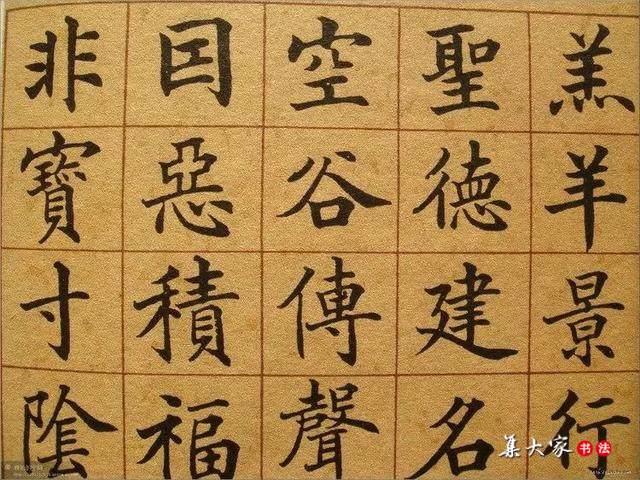 羔羊景行
聖德建名
空谷傳聲
因惡積福
非寶寸陰
集大家书法